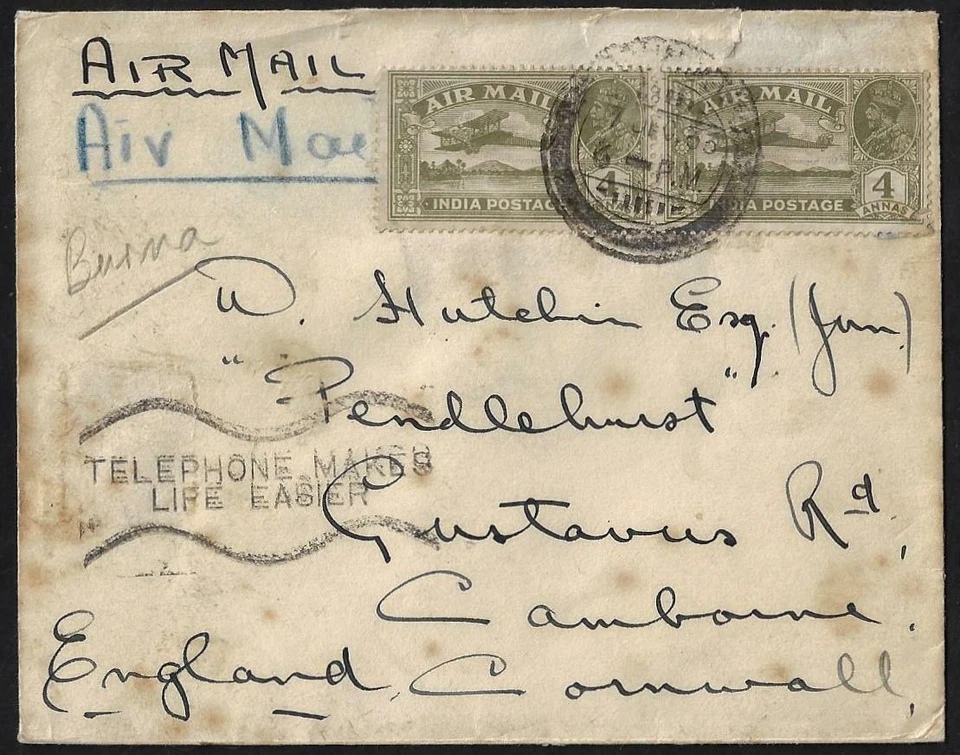 AIR MAIL
Air Mai
AIR MAIL
4
INDIA POSTAGE
AIR MAIL
4
ANNAS
INDIA POSTAGE
7 DEC 33
6 - P.M.
Burma
W. Hutchin Esq. (Jun.)
"Pendlehurst"
TELEPHONE MAKES
LIFE EASIER
Gustavus Rd.,
Camborne,
England, Cornwall,